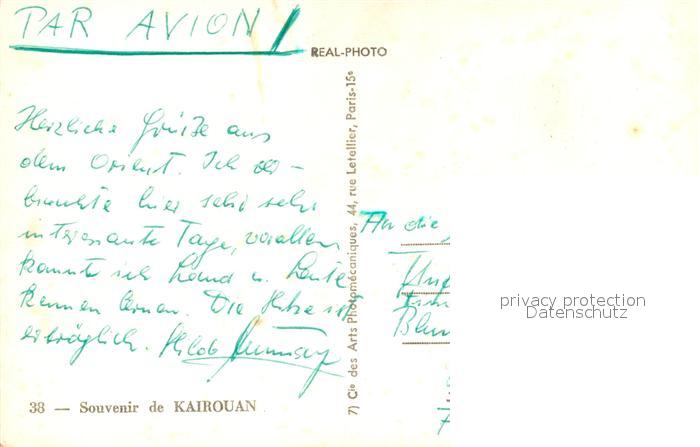 PAR AVION
REAL-PHOTO
Herzliche Grüße aus
dem Orient. Ich ver-
brachte hier sehr sehr
interessante Tage, vorallem
konnte ich Land u. Leute
kennen lernen. Die Hitze ist
erträglich.
38 — Souvenir de KAIROUAN
7) Cie des Arts Photomécaniques, 44, rue Letellier, Paris-15e
An die
privacy protection
Datenschutz